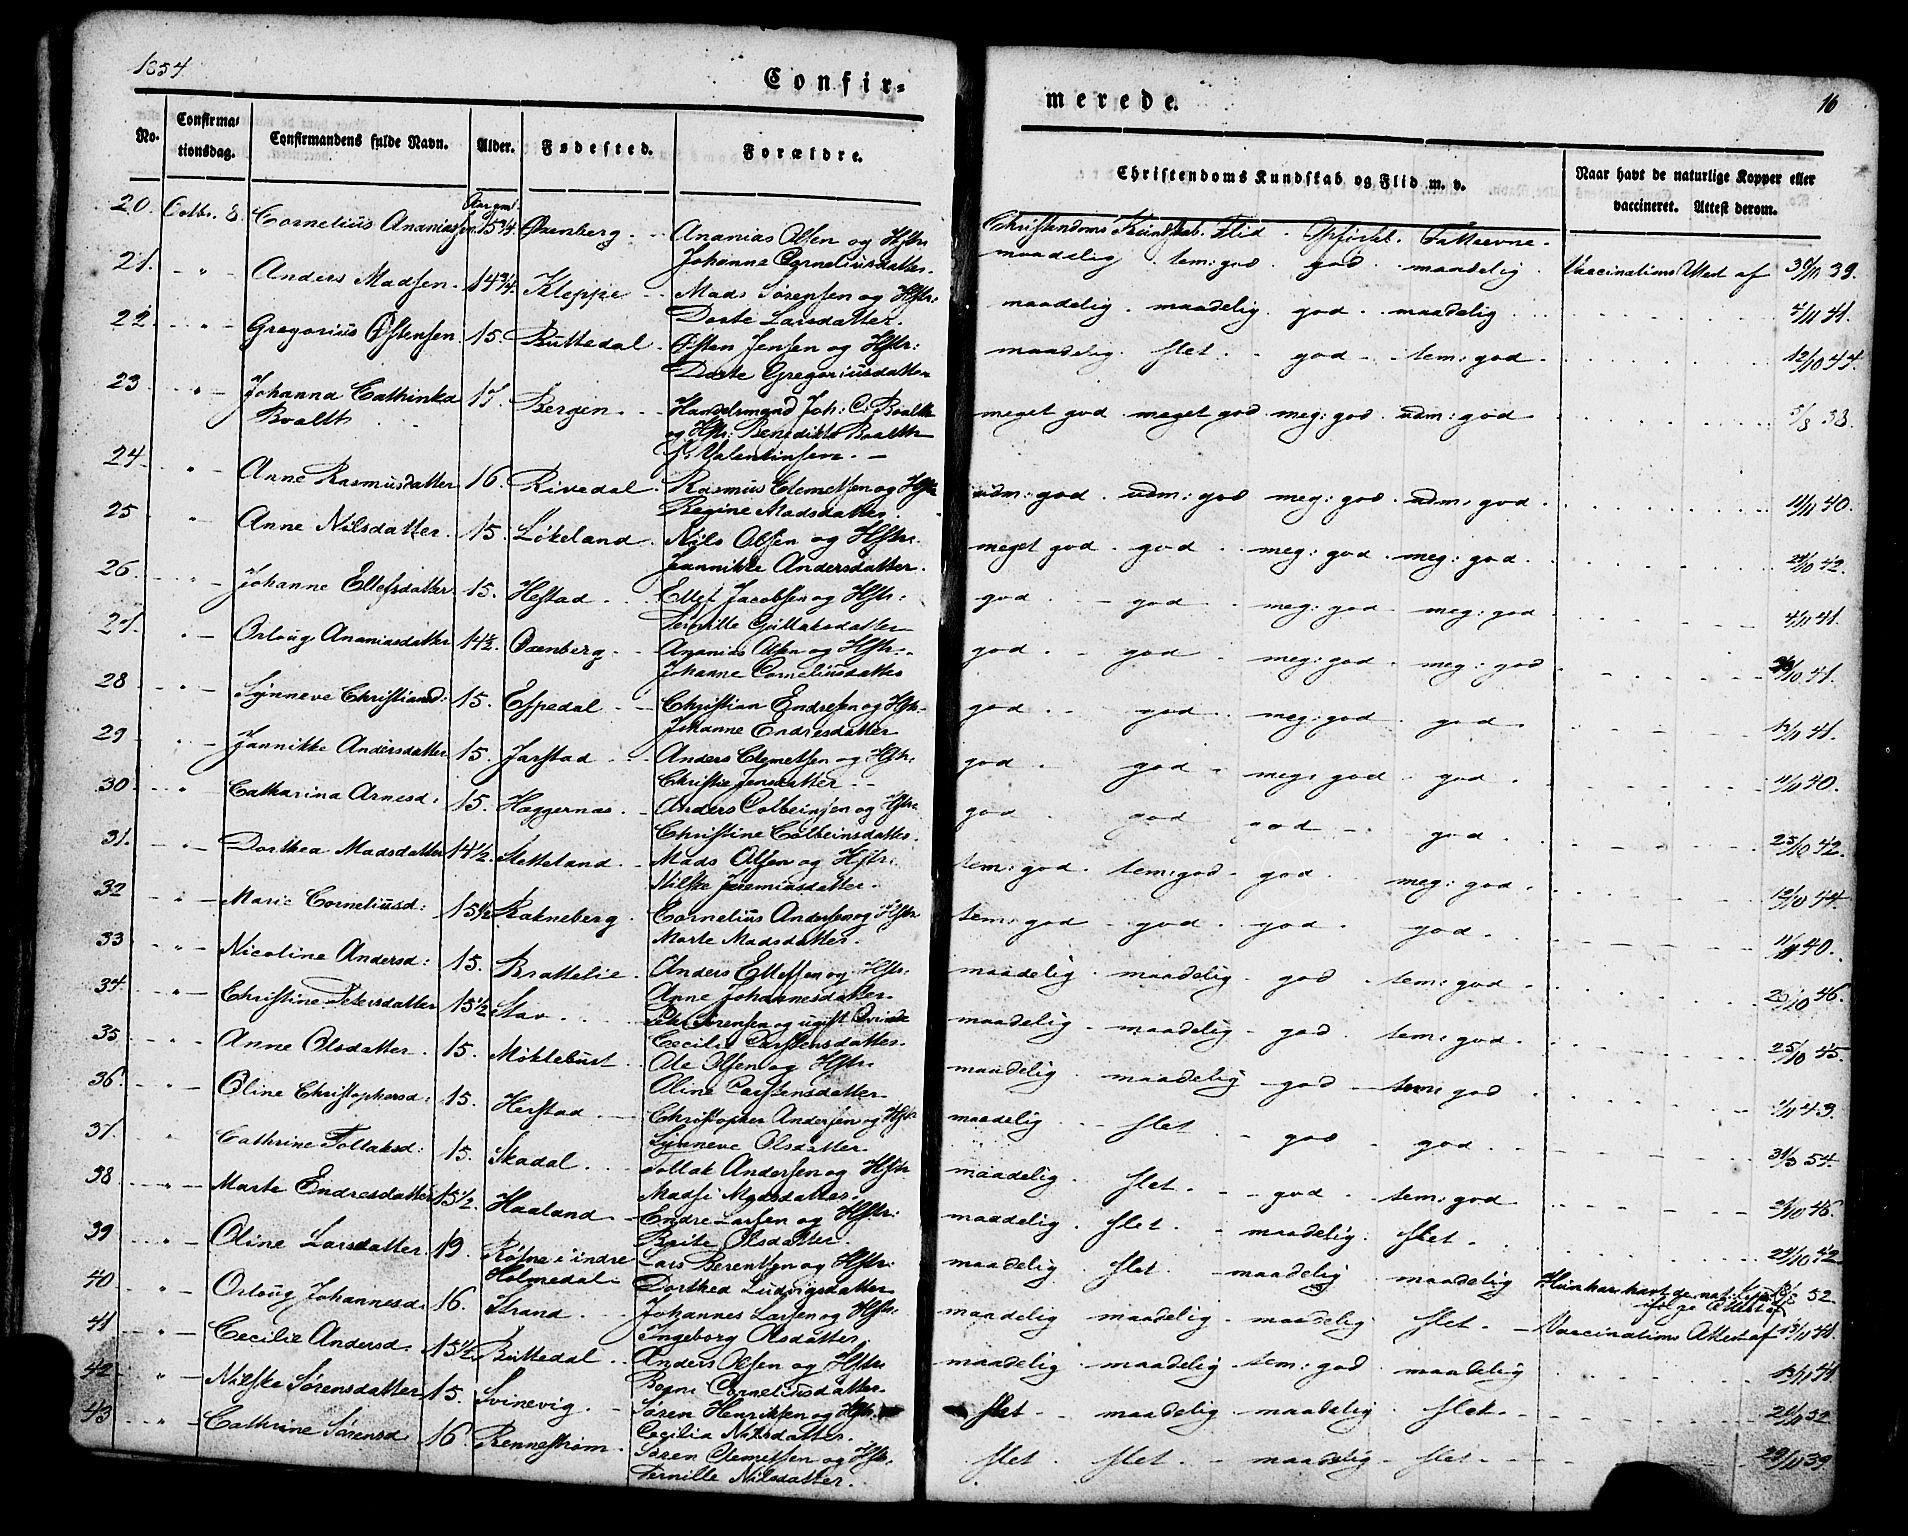 1854
Confir-
merede.
16
No.
Confirma-
tionsdag.
Confirmandens fulde Navn.
Alder.
Fødested.
Forældre.
Christendoms Kundskab og Flid m. v.
Naar havt de naturlige Kopper eller
vaccineret. Attest derom.
20. Octbr. 8. Cornelius Ananiasen 15 3/4. Oxenberg. Ananias Olsen og Hstr:
Johanne Corneliusdatter.
Christendoms Kundskab. Flid. Opførsel. Fatteevne.
maadelig. tem: god. god. maadelig. Vaccinations Attest af 30/11 39.
21. - " - Anders Madsen. 14 3/4. Kleppe Mads Sørensen og Hstr:
Dorte Larsdatter.
maadelig. maadelig. god. maadelig. 4/11 41.
22. - " - Gregorius Østensen. 15. Buttedal. Østen Jensen og Hstr:
Dorte Gregoriusdatter
maadelig. slet. god tem: god. 12/10 44.
23 - " - Johanna Cathinka 17. Bergen. Handelsmand Joh: C: Boalth
Boalth og Hstr: Benedikte Boalth
f. Valentinsen.
meget god meget god meg: god. udm: god 5/8 38.
24. " Anne Rasmusdatter 16. Rivedal. Rasmus Clemetsen og Hstr
Regine Madsdatter.
udm: god. udm: god meg: god. udm: god 11/11 40.
25 " Anne Nilsdatter. 15. Løkeland. Nils Olsen og Hstr:
Jannikke Andersdatter.
meget god. god. meg: god. meg: god. 24/10 42.
26. - " - Johanne Ellefsdatter 15. Hestad. Ellef Jacobsen og Hstr:
Pernille Guttaksdatter
god. god. meg: god meg: god 4/11 41.
27. " - Orloug Ananiasdatter 14 1/2. Oxenberg. Ananias Olsen og Hstr:
Johanne Corneliusdatter
god. god meg: god. meg: god /10 41.
28 - " - Synneve Christiansd: 15. Espedal Christian Endresen og Hstr
Johanne Endresdatter
god. god. meg: god. god. 13/11 41.
29 " - Jannikke Andersdatter 15. Jarstad Anders Clemetsen og Hstr:
Christie Jensdatter
god god meg: god god. 11/11 40.
30 - " Catharina Arnesd: 15. Haggernæs. Anders Colbeinsen og Hstr:
Christine Colbeinsdatter.
god. god god god. 25/10 42.
31. - " - Dorthea Madsdatter 14 1/2. Steteland. Mads Olsen og Hstr:
Nilske Jeremiasdatter.
tem: god. tem: god. god. meg: god. 12/10 44.
32 - " - Marie Corneliusd: 15 1/2 Rakneberg. Cornelius Andersen og Hstr
Marte Madsdatter.
tem: god god. god. god. 11/11 40.
33. - " - Nicoline Andersd: 15. Brattelie. Anders Ellefsen og Hstr:
Anne Johannesdatter.
maadelig. maadelig. god tem: god. 20/10 46.
34. - " - Christine Petersdatter 15 1/2 Stav. Peter Sørensen og ugift Qvinde
Cecilie Carstensdatter.
maadelig. maadelig. god tem: god. 25/10 45.
35 - " - Anne Olsdatter. 15. Møklebust. Ole Olsen og Hstr:
Oline Carstensdatter
maadelig. maadelig god tem: god 1/11 43.
36. - " - Oline Christophersd: 15. Herstad. Christopher Andersen og Hstr
Synneve Olsdatter
maadelig. slet. god god 31/3 54.
37. " Cathrine Tollaksd: 15. Skadal. Tollak Andersen og Hstr
Madsi Madsdatter.
maadelig. slet. god. tem: god. 2/10 46.
38 - " - Marte Endresdatter 15 1/2. Haaland Endre Larsen og Hstr:
Brite Olsdatter.
maadelig. slet. maadelig. slet. 24/10 42.
39 - " - Oline Larsdatter. 19. Røsne i indre Lars Berentsen og Hstr:
Holmedal Dorthea Ludvigsdatter
maadelig. slet. maadelig maadelig Hun har havt de nat: Kopper
ifølge Attest af 52.
40 - " - Orloug Johannesd: 16. Strand. Johannes Larsen og Hstr:
Ingeborg Olsdatter.
maadelig maadelig. maadelig slet. Vaccinations Attest af 13/11 41.
41 - " - Cecilie Andersd. 15 1/2. Buttedal Anders Olsen og Hstr
Bogni Corneliusdatter.
maadelig maadelig tem: god. maadelig 13/11 41.
42 - " - Nilske Sørensdatter 15. Svinevig. Søren Henriksen og Hstr.
Cecilia Nilsdatter.
slet. maadelig maadelig slet. 39
43 " - Cathrine Sørensd. 16 Rennestrøm. Søren Clemetsen og Hstr.
Pernille Nilsdatter.
slet. slet. maadelig slet 29/11 39.